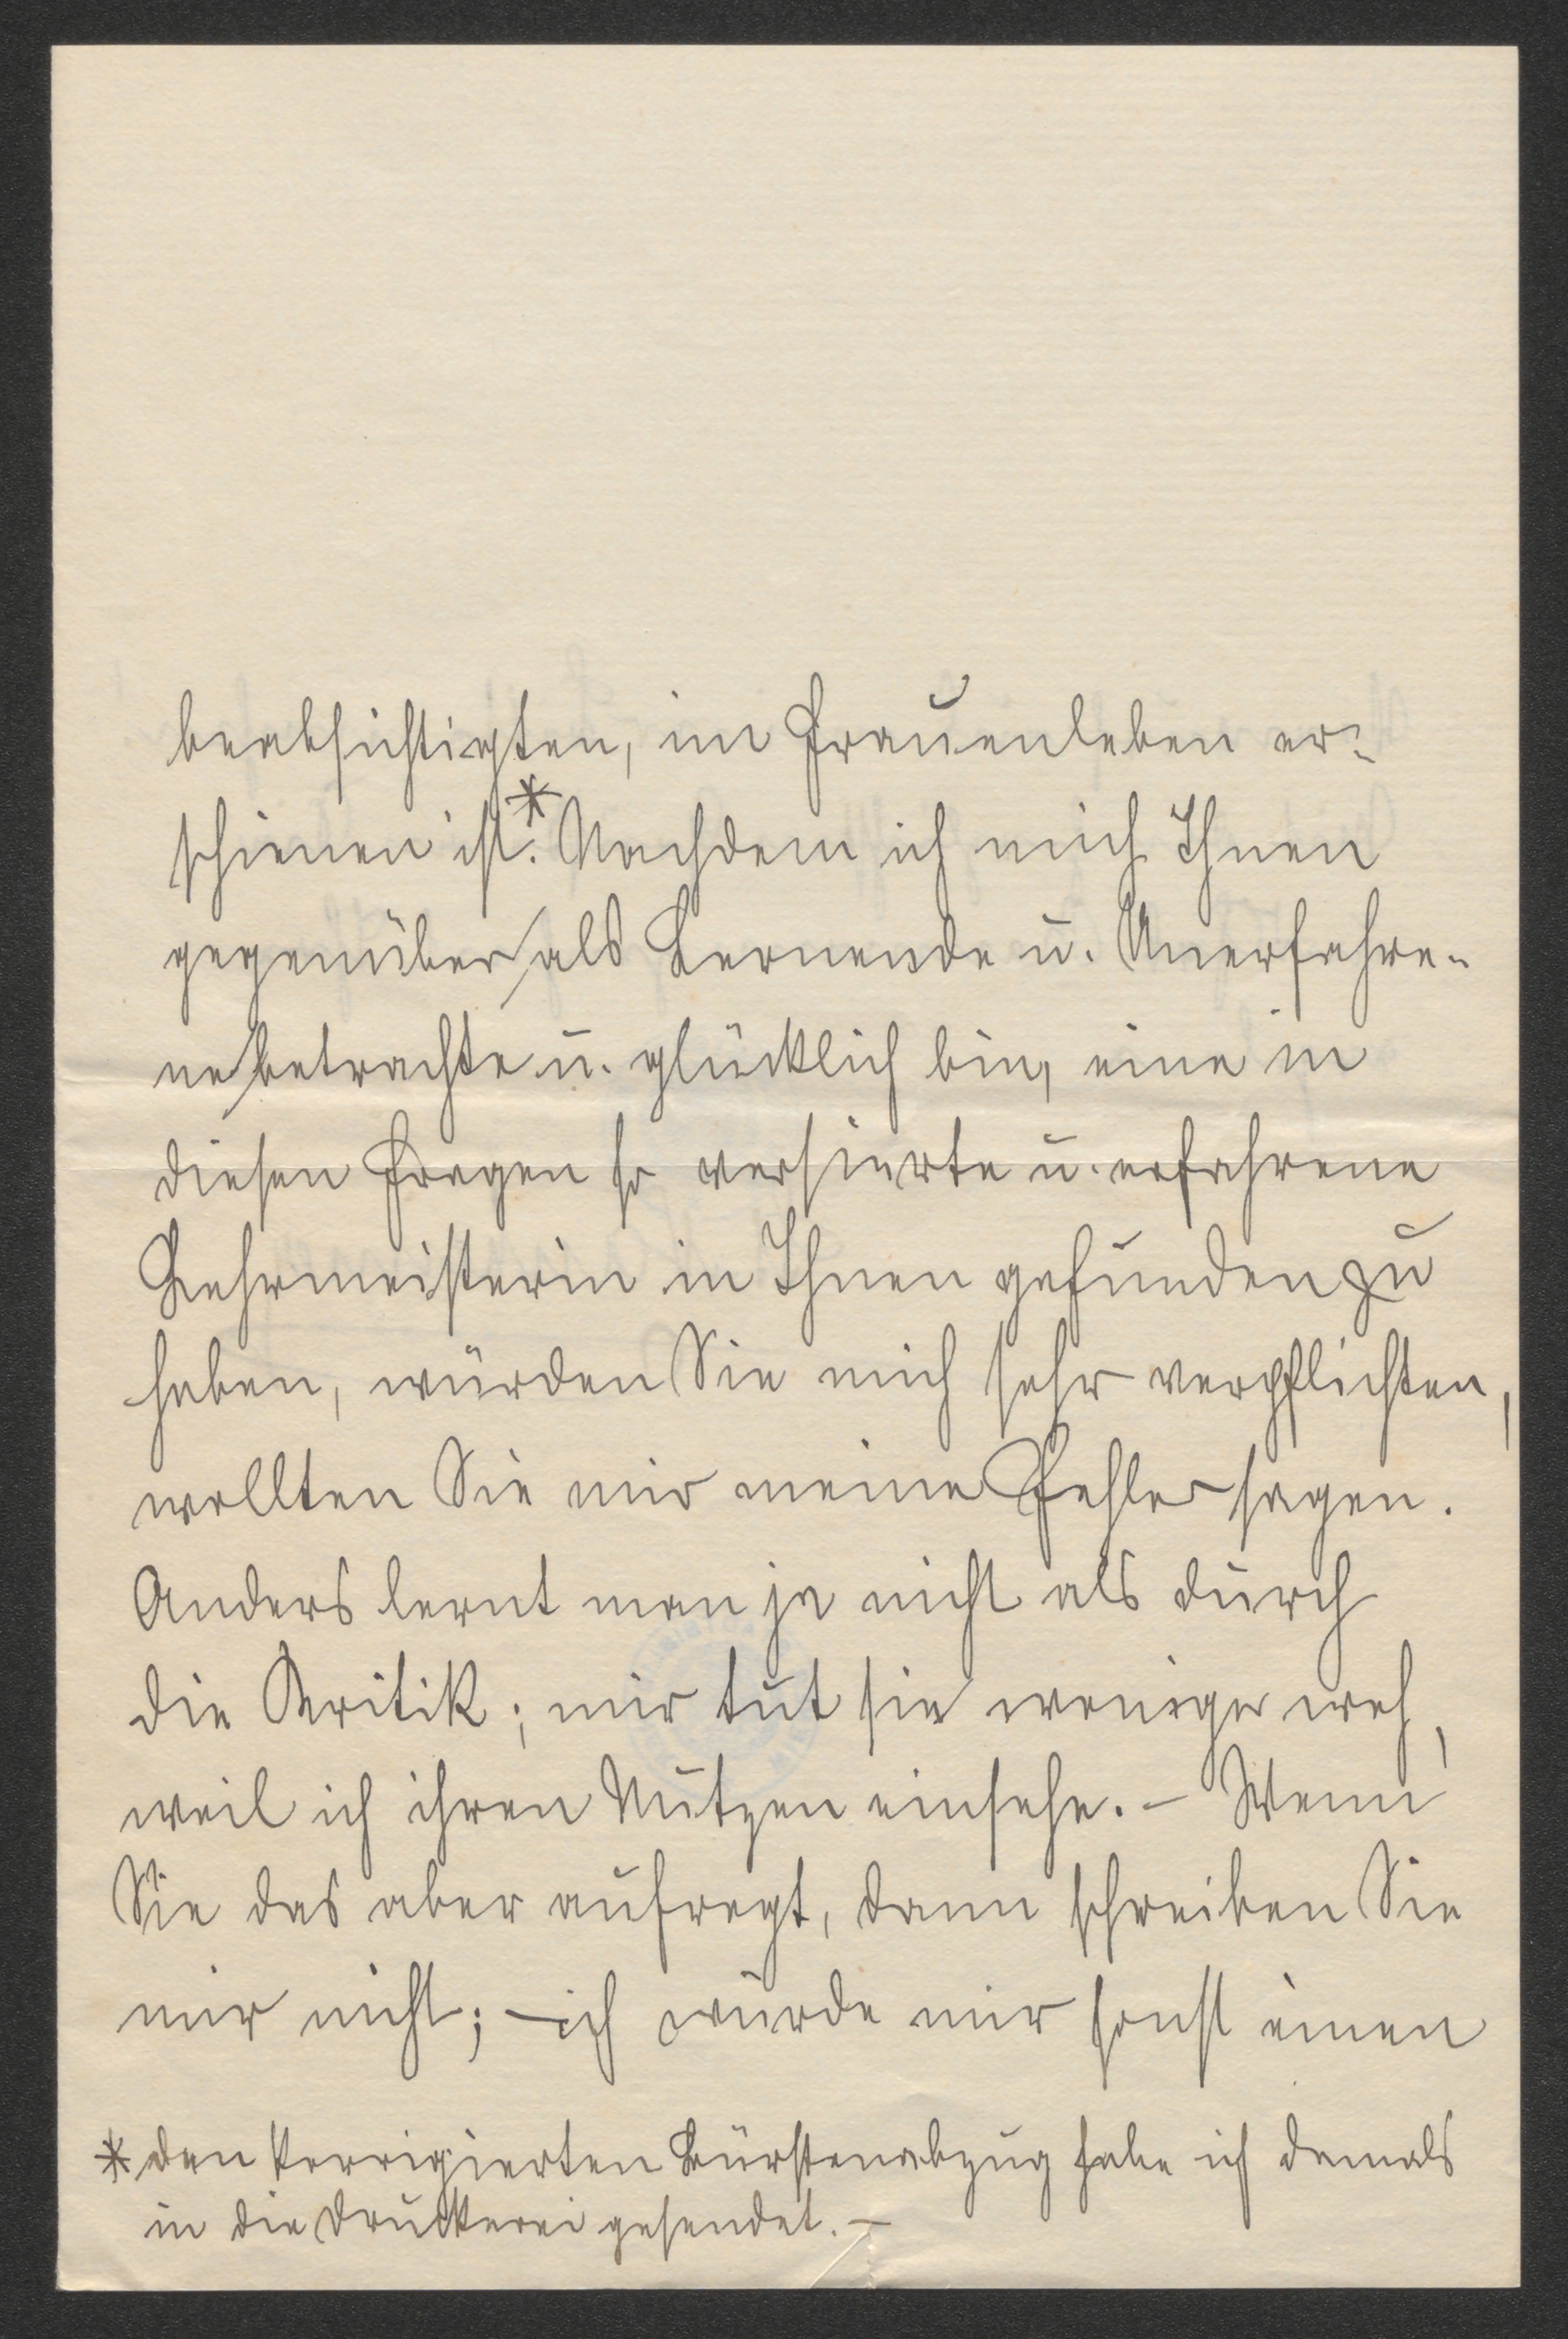 beabsichtigten, im Frauenleben er-
schienen ist.* Nachdem ich mich Ihnen
gegenüber als Lernende u. Unerfahre-
ne betrachte u. glücklich bin, eine in
diesen Fragen so versierte u. erfahrene
Lehrmeisterin in Ihnen gefunden zu
haben, würden Sie mich sehr verpflichten,
wollten Sie mir meine Fehler sagen.
Anders lernt man ja nicht als durch
die Kritik; mir tut sie weniger weh,
weil ich ihren Nutzen einsehe. – Wenn
Sie das aber aufregt, dann schreiben Sie
mir nicht; – ich würde mir sonst einen
* den korrigierten Bürstenabzug habe ich damals
in die Druckerei gesendet. –